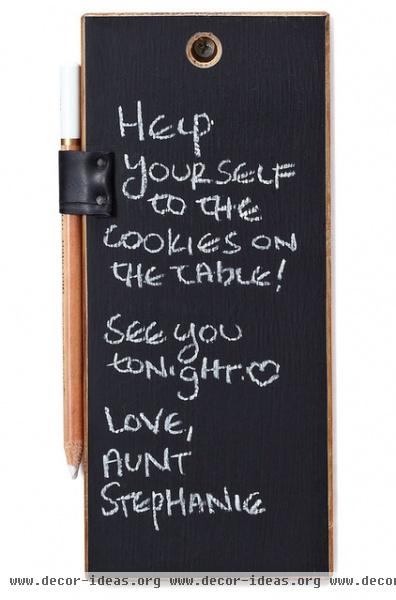 HELP
YOURSELF
to tHE
COOKIES ON
tHE tABLE!
SEE YOU
toNigHt.♡
LOVE,
AUNT
StEpHANIE
www.decor-ideas.org www.decor-ideas.org www.decor-ideas.org